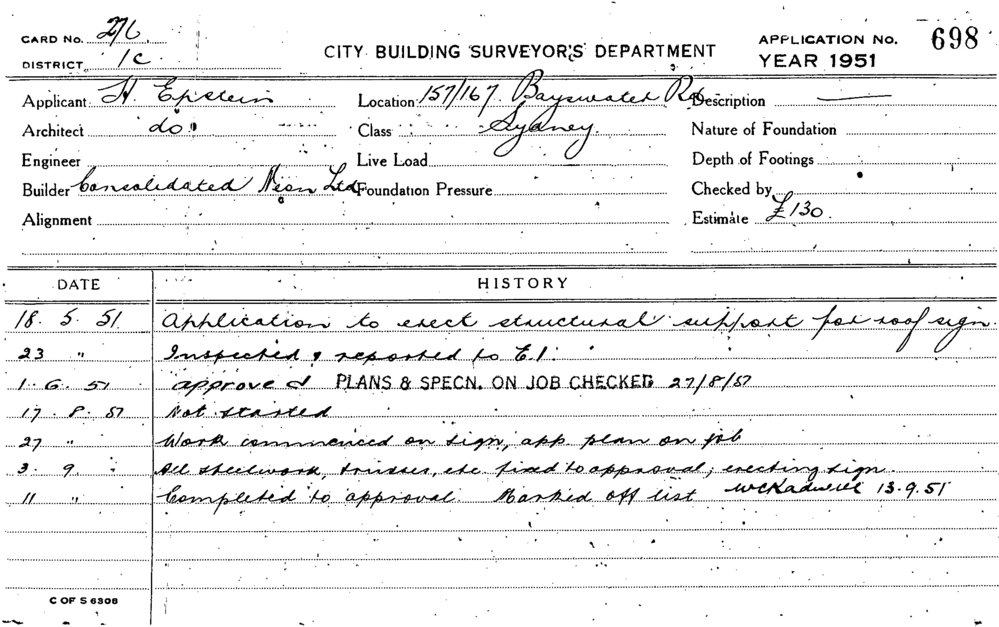 CARD No. 276
DISTRICT 1c
CITY BUILDING SURVEYOR'S DEPARTMENT
APPLICATION No. 698
YEAR 1951
Applicant H. Epstein Location 157/167 Bayswater Rd Description
Architect do. Class Sydney. Nature of Foundation
Engineer Live Load Depth of Footings
Builder Consolidated Neon Ltd. Foundation Pressure Checked by
Alignment Estimate £130.
DATE HISTORY
18. 5. 51 Application to erect structural support for roof sign.
23 " Inspected & reported to E.I.
1. 6. 51 approved PLANS & SPECN. ON JOB CHECKED 27/8/51
17. 8. 51 Not started
27 " Work commenced on sign, app. plan on job
3. 9 " All steelwork, trusses, etc fixed to approval; erecting sign.
11 " Completed to approval. Marked off list 13.9.51
C OF S 6308